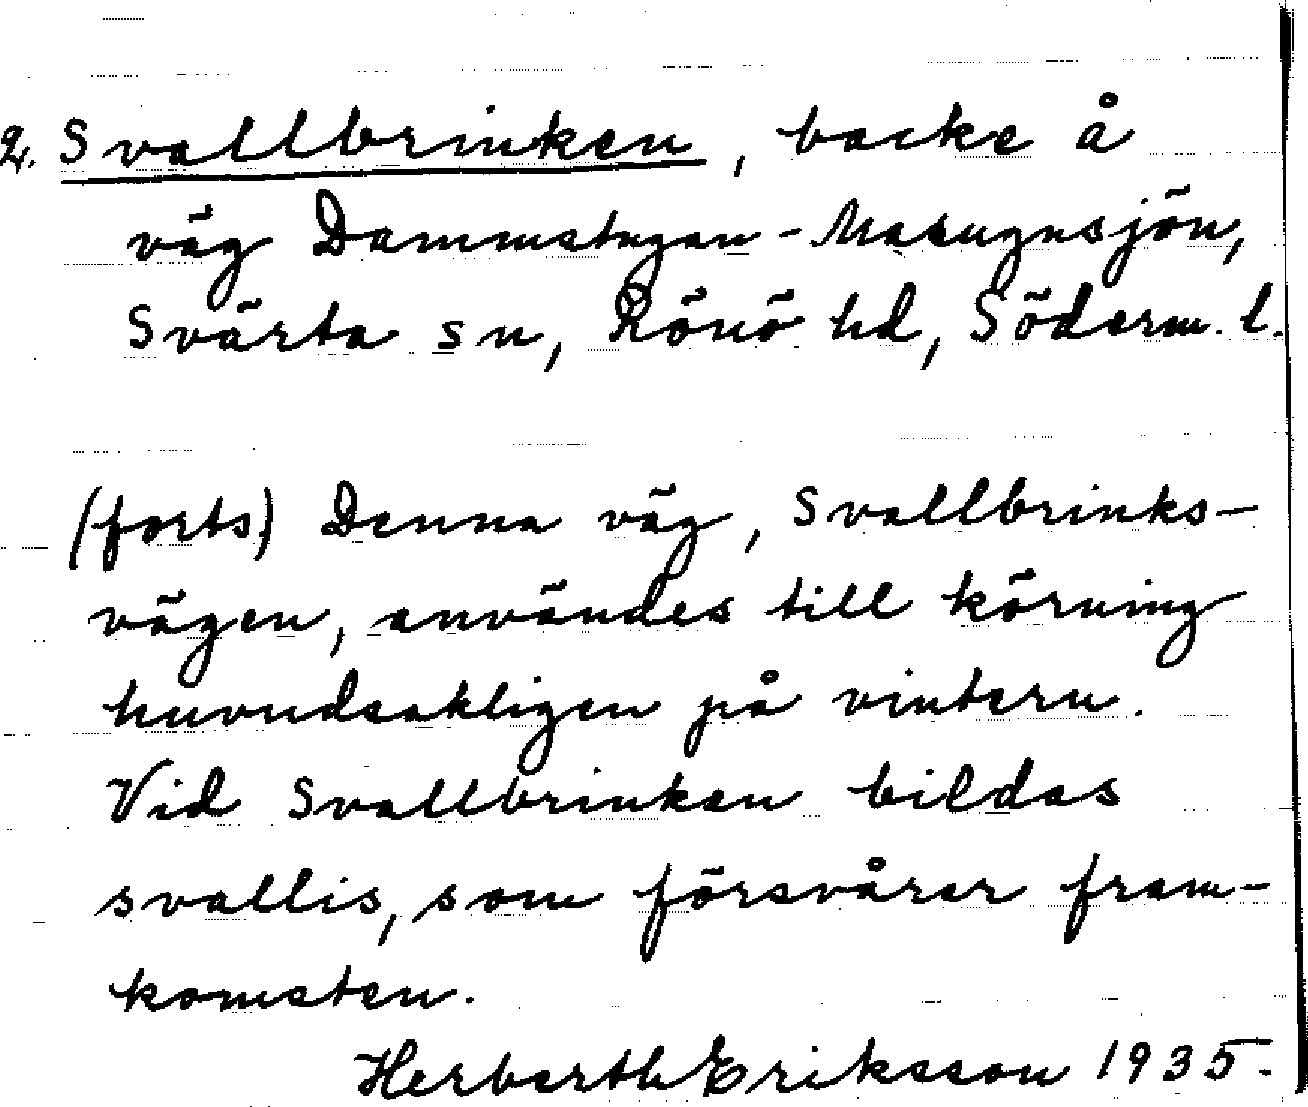 2. Svallbrinken, backe å
väg Dammstugan - Masugnsjön,
Svärta sn, Rönö hd, Söderm. l.
(forts) Denna väg, Svallbrinks-
vägen, användes till körning
huvudsakligen på vintern.
Vid Svallbrinken bildas
svallis, som försvårar fram-
komsten.
Herberth Eriksson 1935.